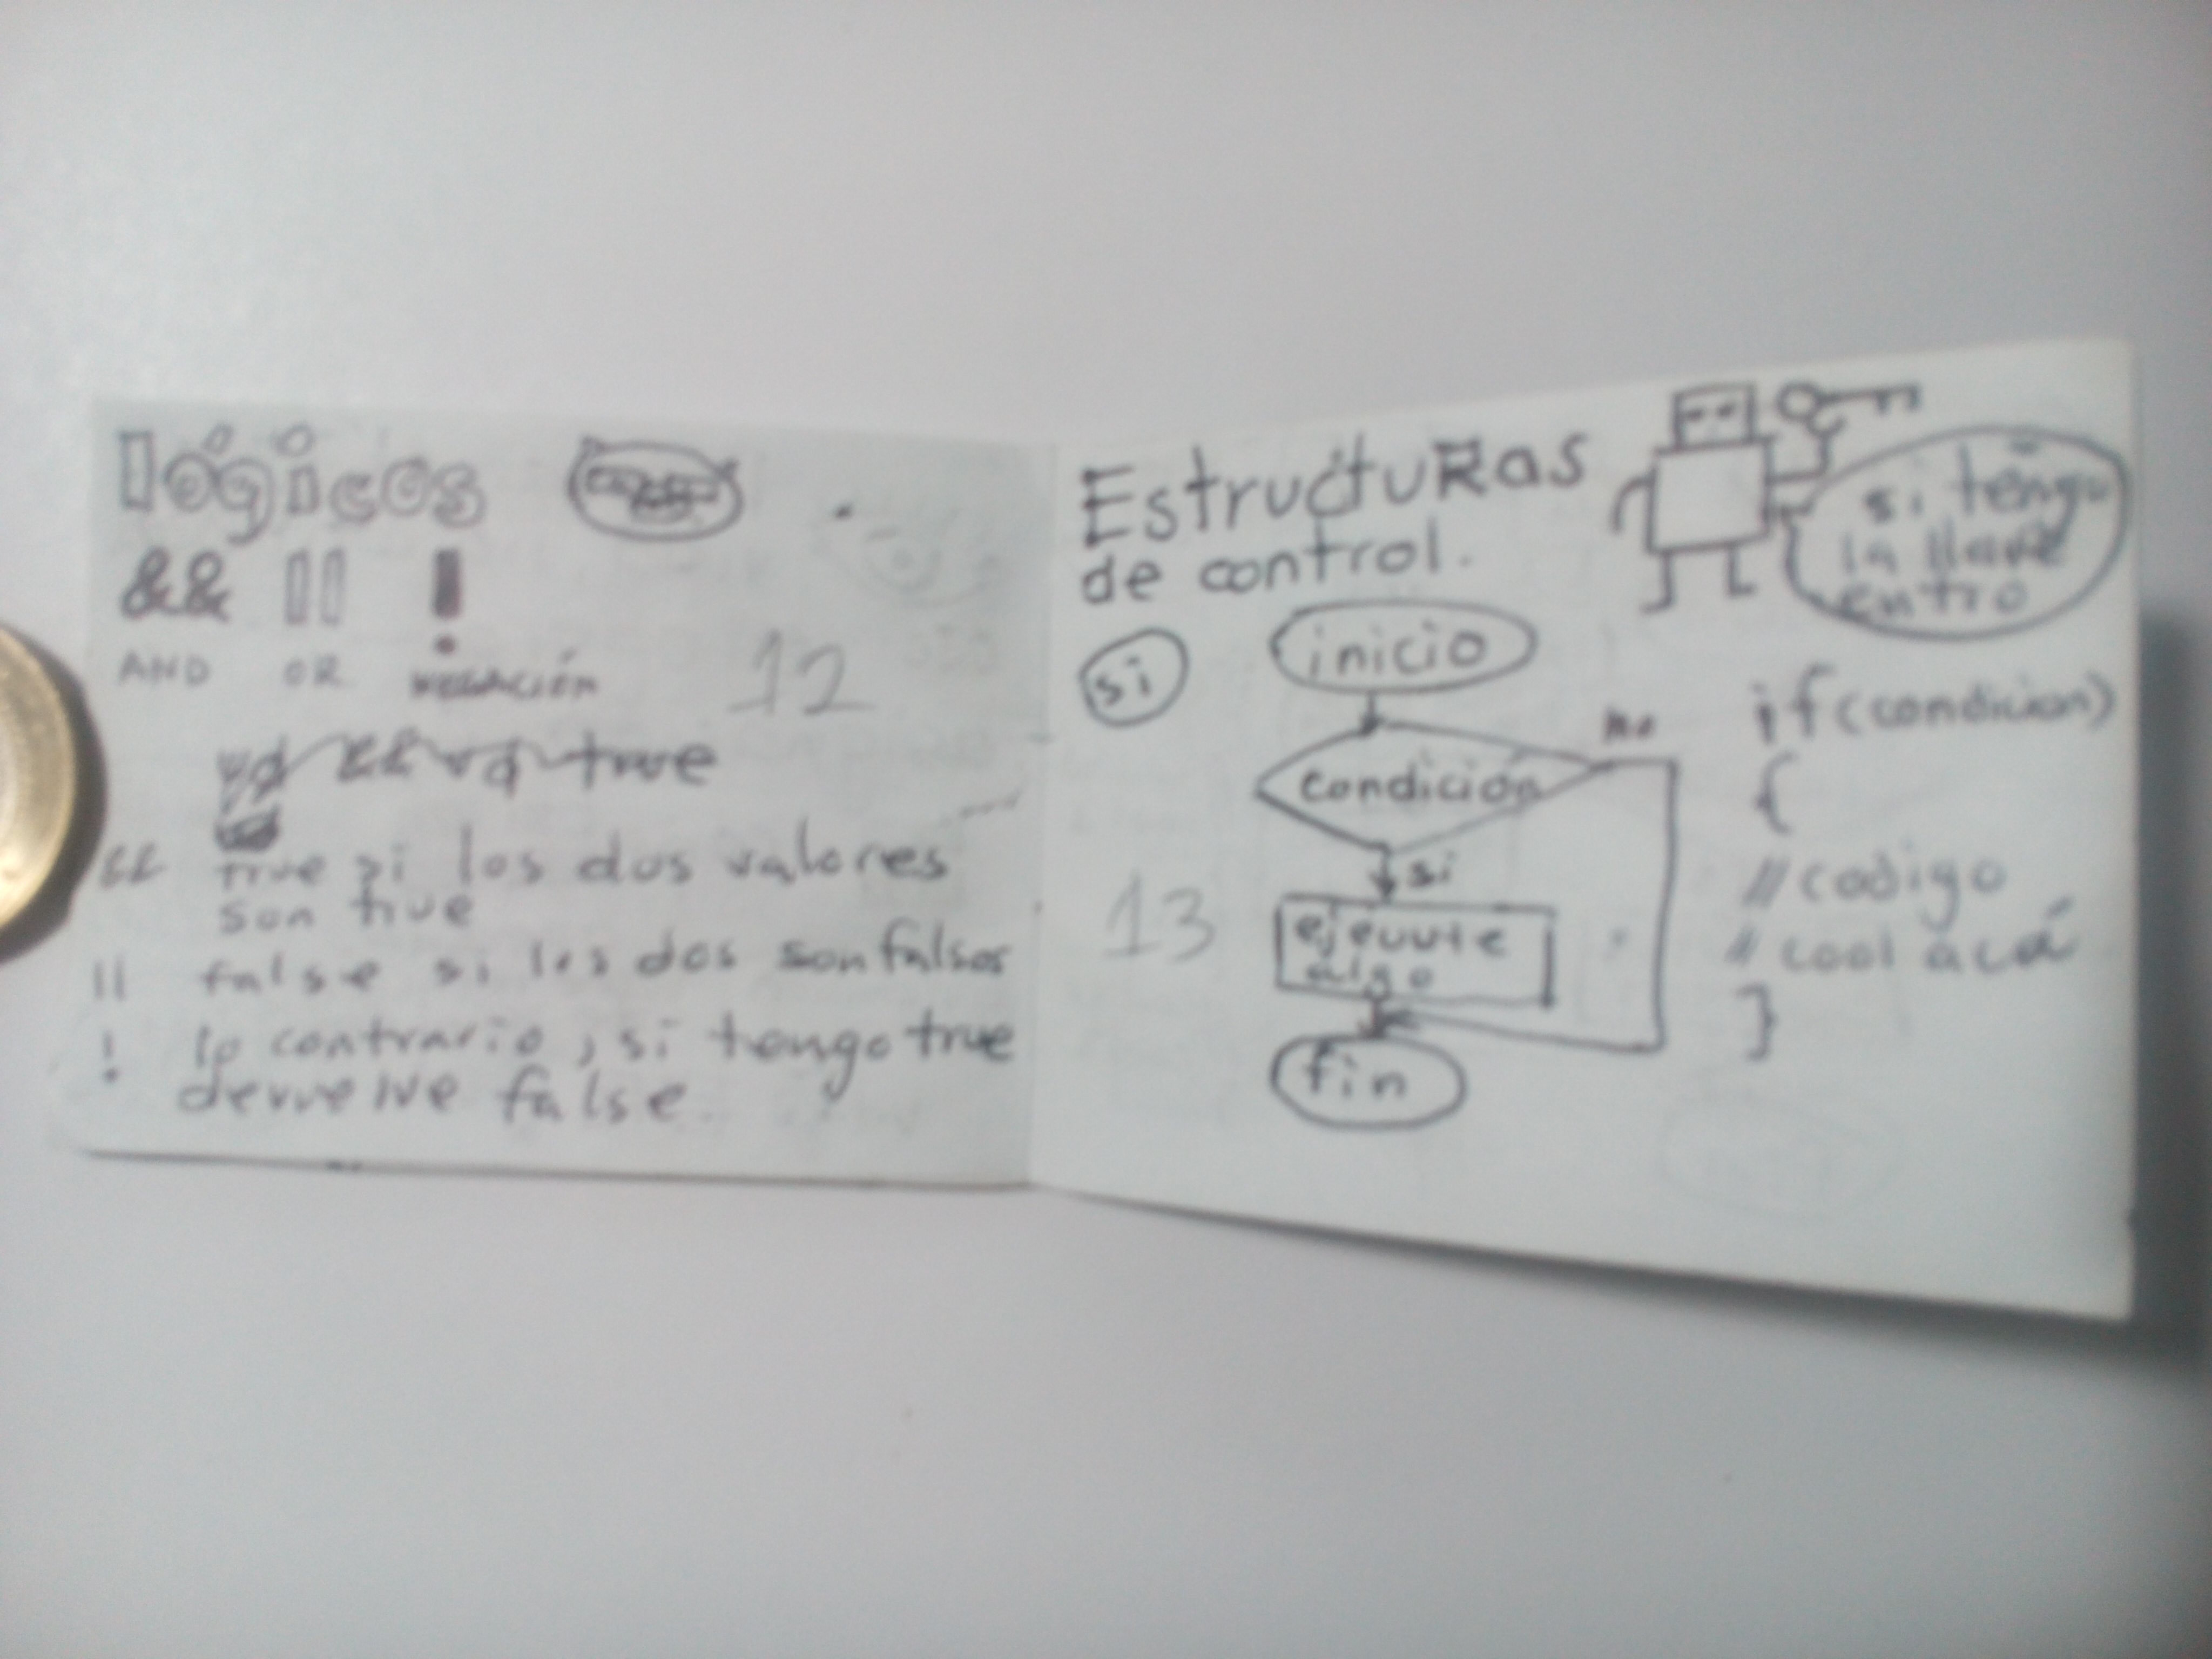 lógicos
&& || !
AND OR negación
12
true
&& true si los dos valores
son true
|| false si los dos son falsos
! lo contrario, si tengo true
devuelve false.
Estructuras
de control.
si tengo
la llave
entro
si
inicio
condición
no
si
ejecute
algo
fin
13
if (condicion)
{
// codigo
// cool acá
}